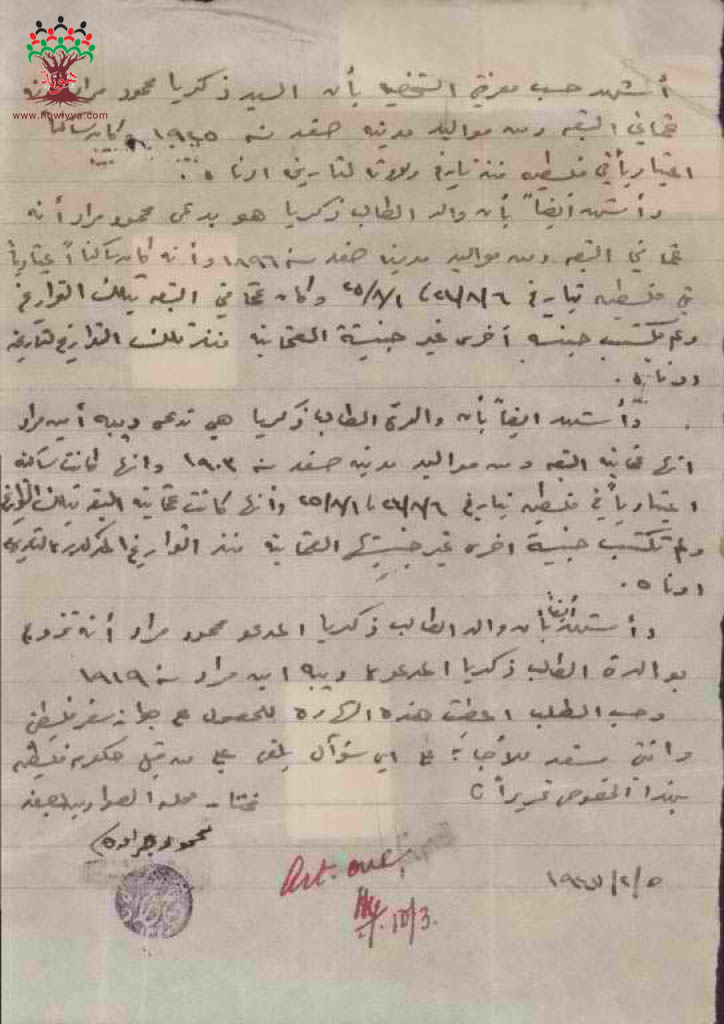 www.howiyya.com
أشهد حسب معرفتي الشخصية بأن السيد زكريا محمود مراد أنه
عثماني التبعة ومن مواليد مدينة صفد سنة ١٩٢٥ وكان ساكناً
اعتيادياً في فلسطين منذ تاريخ لتاريخ ادناه .
وأشهد أيضاً بأن والد الطالب زكريا هو يدعى محمود مراد أنه
عثماني التبعة ومن مواليد مدينة صفد سنة ١٨٩٦ وأنه كان ساكناً اعتيادياً
في فلسطين بتاريخ ٢٤/٨/٦ و ٢٥/٨/١ وكان عثماني التبعة بتلك التواريخ
ولم يكتسب جنسية أخرى غير جنسيته العثمانية منذ تلك التواريخ لتاريخه
ادناه .
وأشهد ايضاً بأن والدة الطالب زكريا هي تدعى أمين مراد
انها عثمانية التبعة ومن مواليد مدينة صفد سنة ١٩٠٣ وانها كانت ساكنة
اعتيادياً في فلسطين بتاريخ ٢٤/٨/٦ و ٢٥/٨/١ وأنها كانت عثمانية التبعة بتلك التواريخ
ولم تكتسب جنسية اخرى غير جنسيتها العثمانية منذ التواريخ المذكورة لتاريخه
ادناه .
وأشهد أيضاً بأن والد الطالب زكريا المدعو محمود مراد أنه تزوج
بوالدة الطالب زكريا المدعوة امين مراد سنة ١٩١٩
وحسب الطلب اعطيت هذه الشهادة للحصول على جواز سفر فلسطيني
وانني مستعد للأجابة على اي سؤال يلقى علي من قبل حكومة فلسطين
بهذا الخصوص تحريراً محلة بصفد
محمود
Art. one,
10/3.